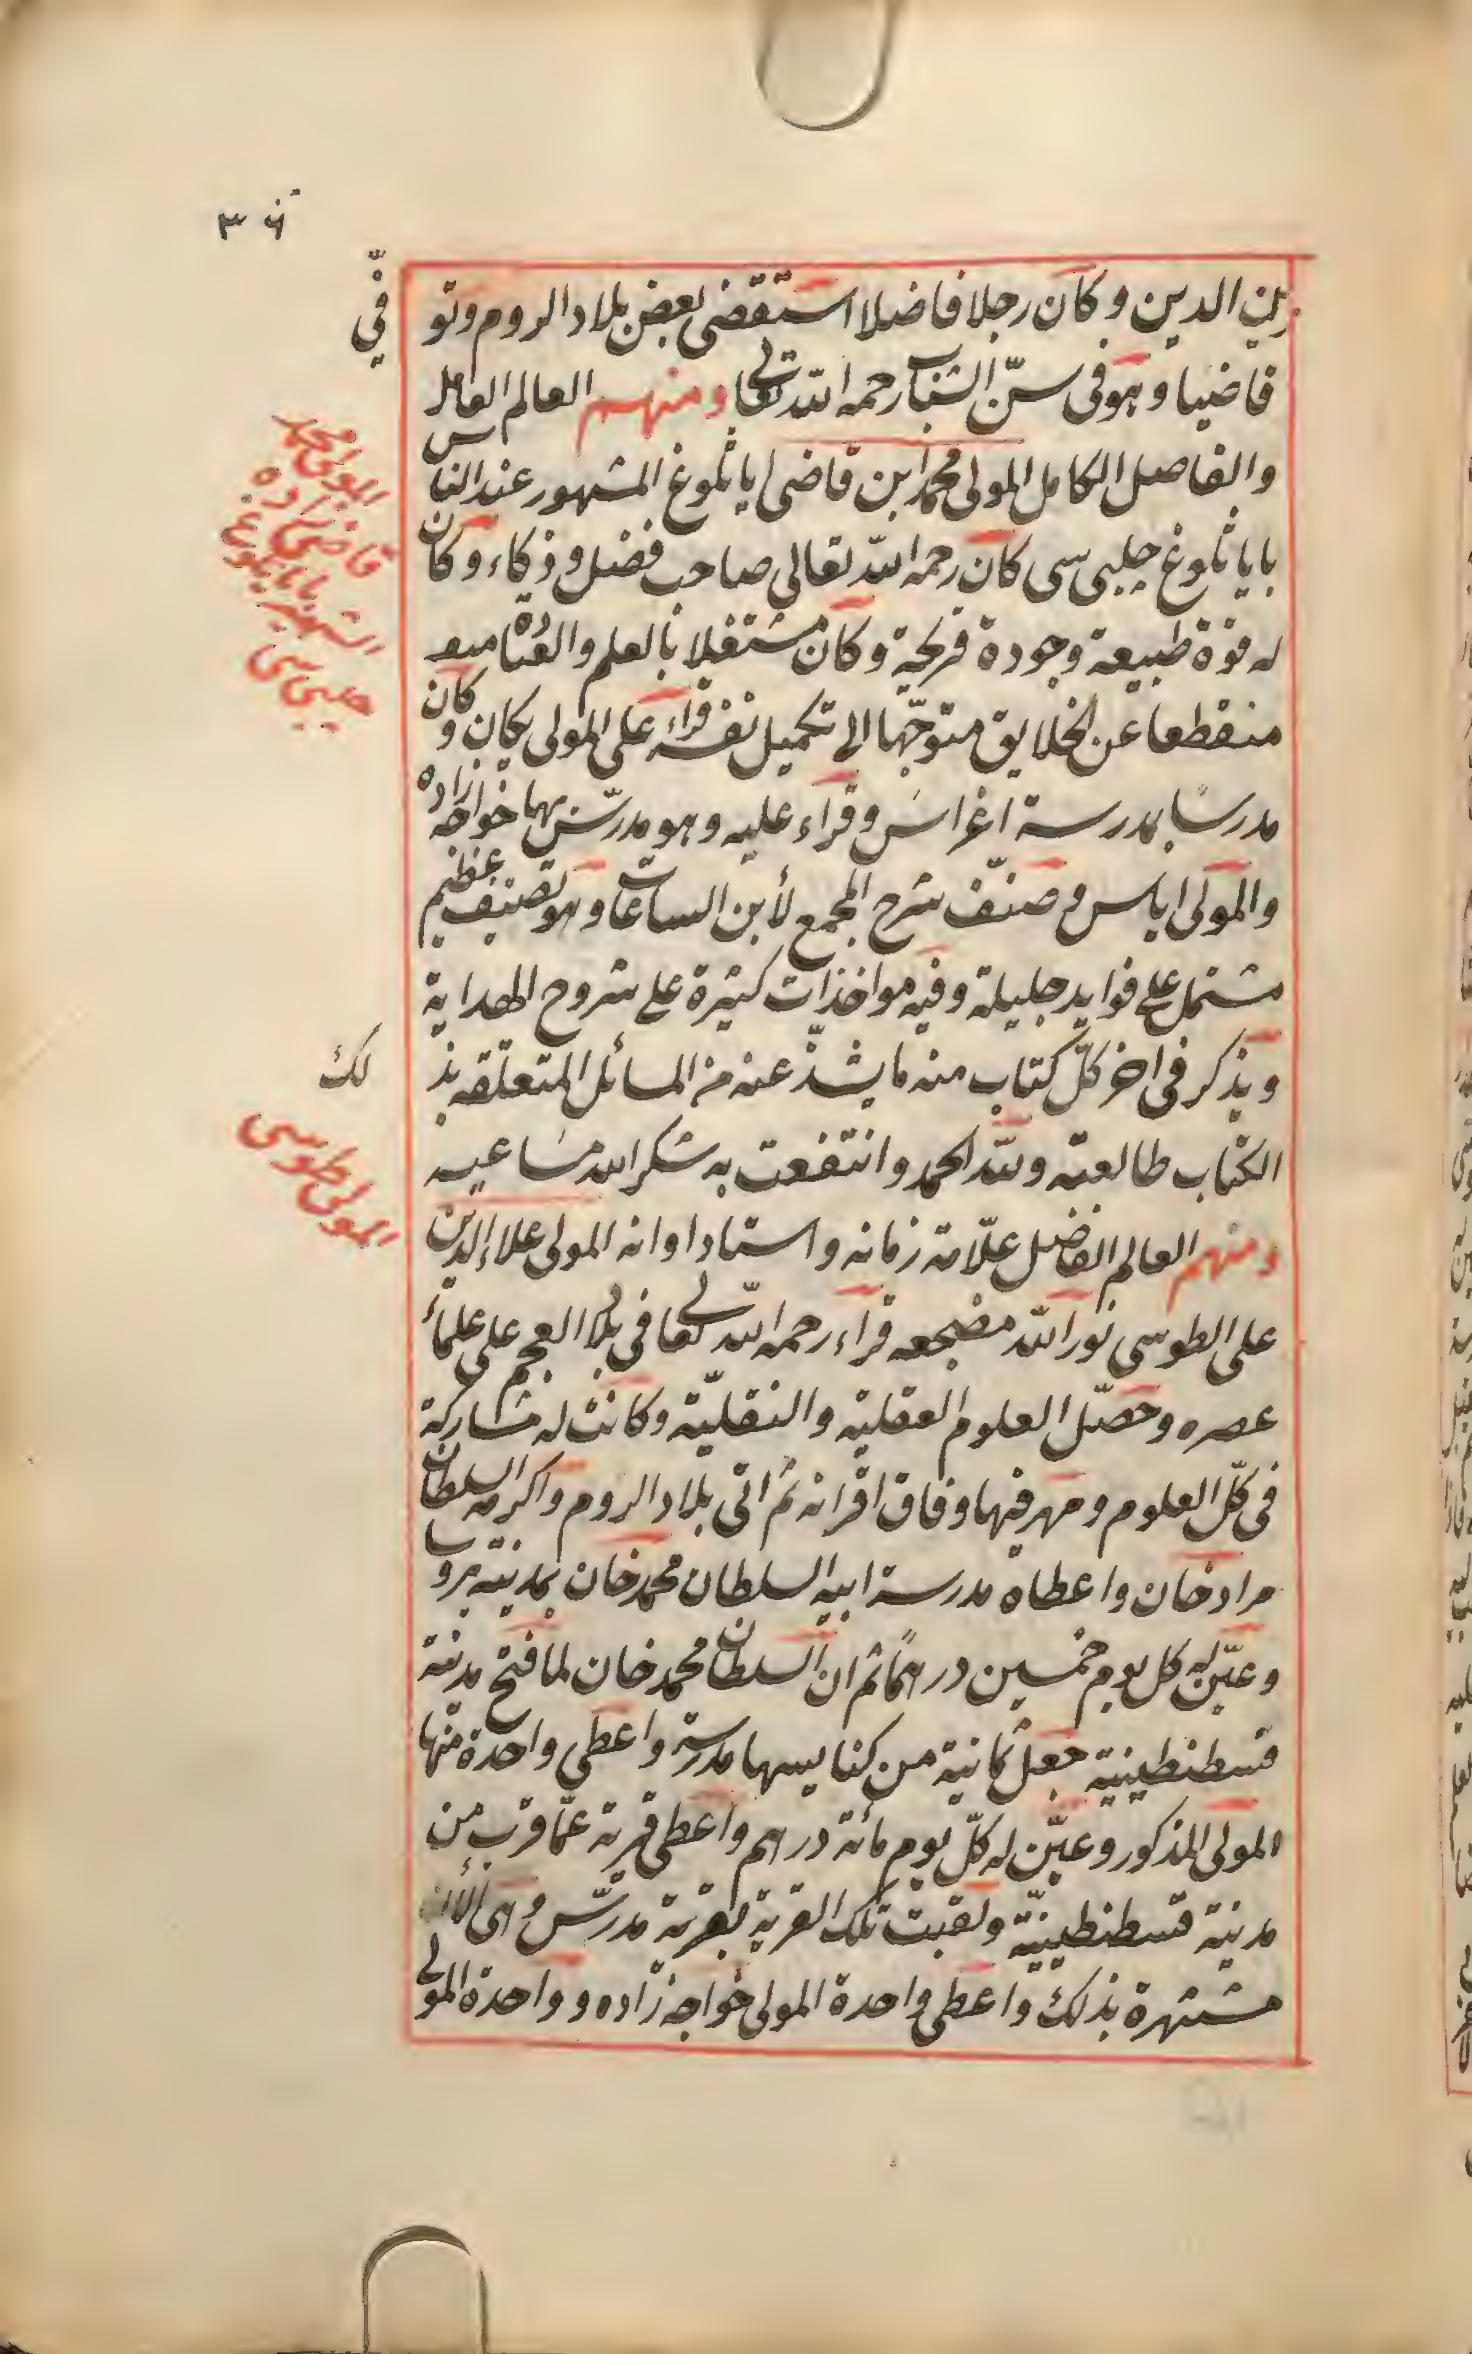 ٣٦
زين الدين وكان رجلا فاضلا استقضى بعض بلاد الروم وتوفّي
قاضيا وهو فى سنّ الشباب رحمه الله تعالى ومنهم العالم العامل
والفاضل الكامل المولى محمد ابن قاضى اياثلوغ المشهور عند الناس
باياثلوغ چلبى سى كان رحمه الله تعالى صاحب فضل وذكاء وكان
له قوة طبيعة وجودة قريحة وكان مشتغلا بالعلم والعبادة
منقطعا عن الخلايق متوجّها الى تكميل نفسه قراء على المولى يكان وكان
مدرسا بمدرسة اغراس وقراء عليه وهو مدرّس بها خواجه زاده
والمولى اياس وصنّف شرح المجمع لأبن الساعات وهو تصنيف عظيم
مشتمل على فوايد جليلة وفيه مواخذات كثيرة على شروح الهداية
ويذكر فى اخر كلّ كتاب منه ما يشذّ عنه من المسائل المتعلقه بذلك
الكتاب طالعته ولله الحمد وانتفعت به شكر الله مساعيه
ومنهم العالم الفاضل علّامة زمانه واستاد اوانه المولى علاء الدين
على الطوسى نور الله مضجعه قراء رحمه الله تعالى فى بلاد العجم على علماء
عصره وحصّل العلوم العقلية والنقليّة وكانت له مشاركة
فى كلّ العلوم ومهر فيها وفاق اقرانه ثم اتى بلاد الروم واكرمه السلطان
مراد خان واعطاه مدرسة ابيه السلطان محمد خان بمدينة بروسا
وعيّن له كل يوم خمسين درهمًا ثم ان السلطان محمد خان لما فتح مدينة
قسطنطينية جعل ثمانية من كنايسها مدرسة واعطى واحدة منها
المولى المذكور وعيّن له كلّ يوم مائة درهم واعطى قرية عمّا قرب من
مدينة قسطنطينيّة ولقبت تلك القرية بقرية مدرّس وهى الأن
مشتهرة بذلك واعطى واحدة المولى خواجه زاده وواحدة المولى
المولى محمد
قاضى زاده
الشهير باياثلوغ
چلبى سى
المولى طوسى